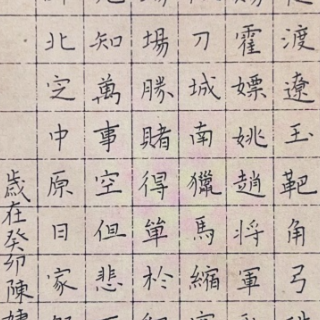 渡遼玉靶角弓
霍嫖姚趙將軍
刀城南獵馬縮
場勝賭得單於
知萬事空但悲
北定中原日家
歲在癸卯陳